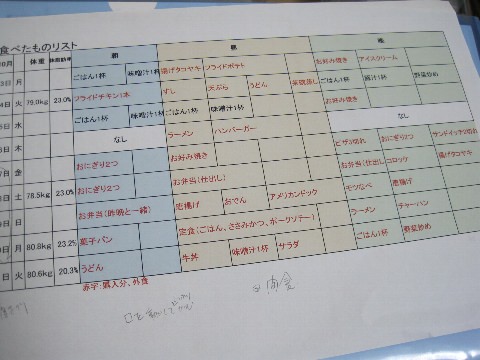 食べたものリスト
10月 体重 体脂肪率 朝 昼 晩
3日 月 ごはん1杯 味噌汁1杯 揚げタコヤキ フライドポテト お好み焼き アイスクリーム
4日 火 79.0kg 23.0% フライドチキン1本 すし 天ぷら うどん 茶碗蒸し ごはん1杯 豚汁1杯 野菜炒め
5日 水 ごはん1杯 味噌汁1杯 ごはん1杯 味噌汁1杯 お好み焼き
6日 木 なし ラーメン ハンバーガー なし
7日 金 おにぎり2つ お好み焼き ピザ2切れ おにぎり2つ サンドイッチ2切れ
8日 土 78.5kg 23.0% おにぎり2つ お弁当(仕出し) お弁当(仕出し) コロッケ 揚げタコヤキ
9日 日 お弁当(昨晩と一緒) 唐揚げ おでん アメリカンドック モツなべ 唐揚げ
月 80.8kg 23.2% 菓子パン 定食(ごはん、ささみかつ、ポークソテー) ラーメン チャーハン
火 80.6kg 20.3% うどん 牛丼 味噌汁1杯 サラダ ごはん1杯 野菜炒め
赤字:購入分、外食